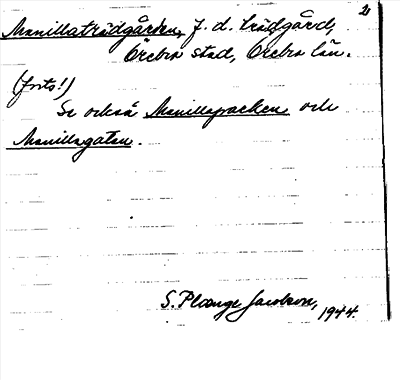 2)
Manillaträdgården, f.d. trädgård,
Örebro stad, Örebro län.
(forts!)
Se också Manillaparken och
Manillagatan.
S. Plænge Jacobson, 1944.